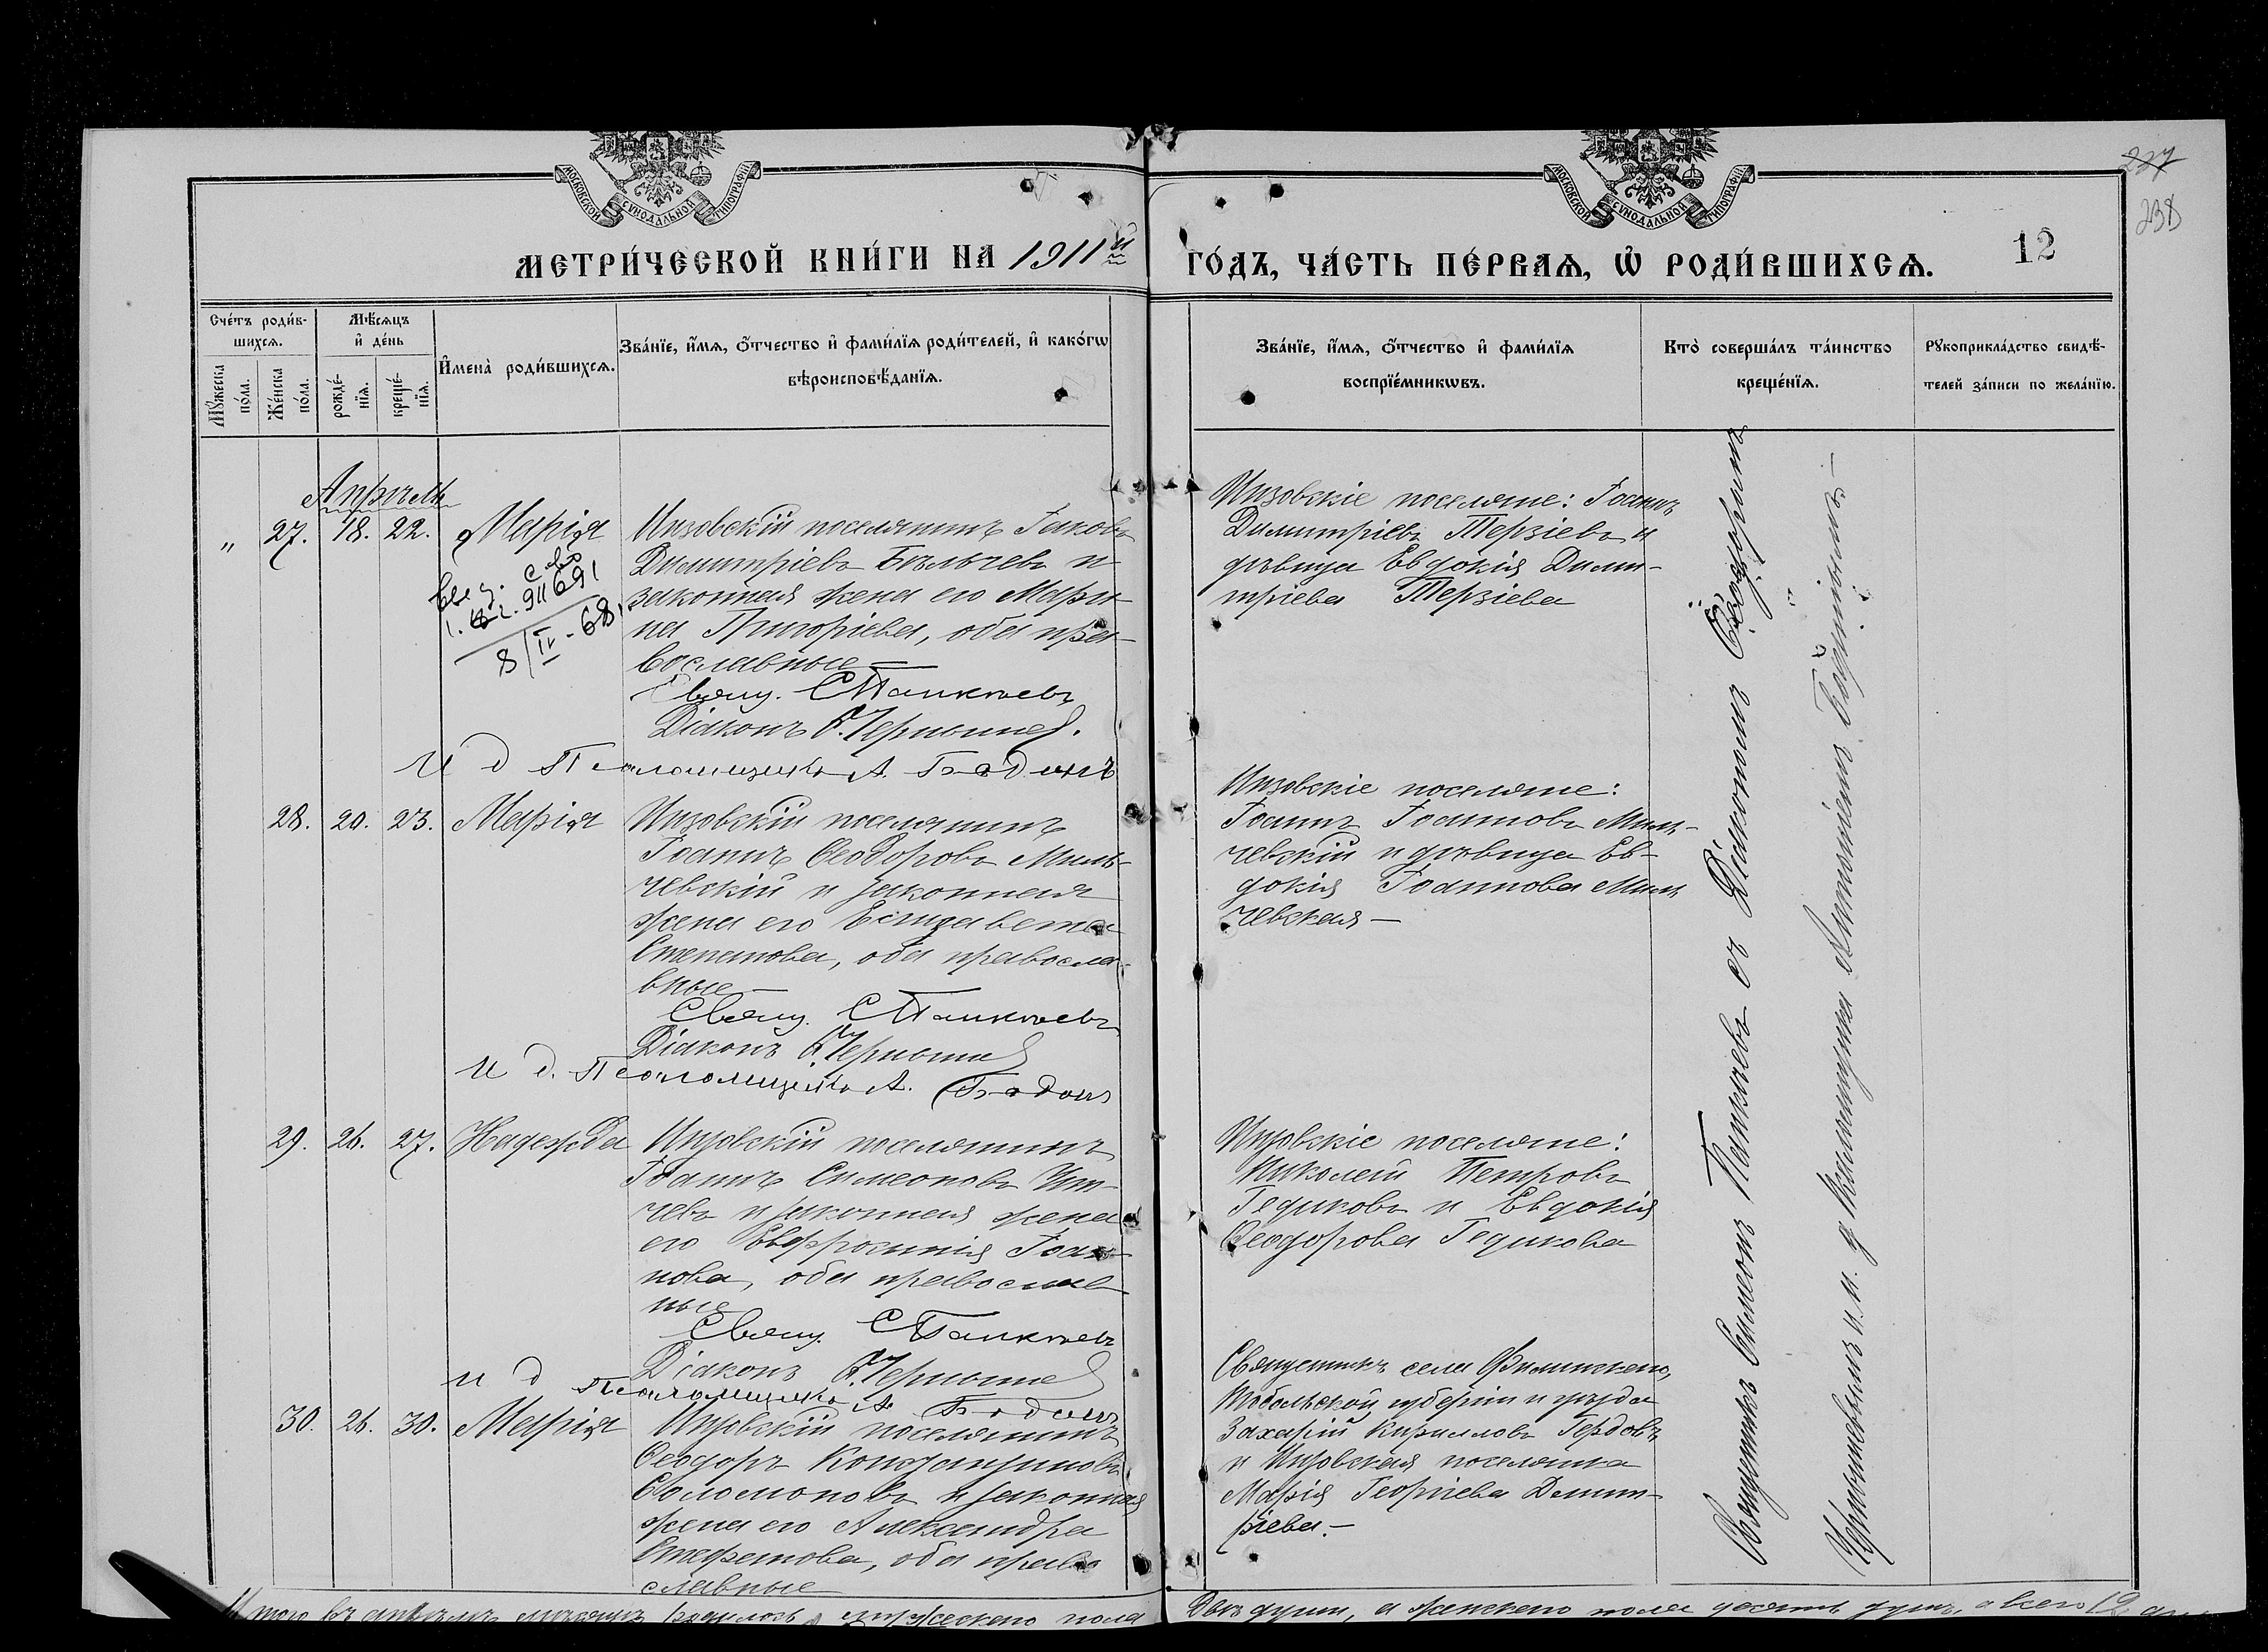 МОСКОВСКОЙ СУНОДАЛЬНОЙ ТИПОГРАФІИ
МОСКОВСКОЙ СУНОДАЛЬНОЙ ТИПОГРАФІИ
237
238
МЕТРИ́ЧЕСКОЙ КНИ́ГИ НА 1911й
ГО́ДЪ, ЧА́СТЬ ПЕ́РВАѦ, Ѡ҆ РОДИ́ВШИХСѦ.
12
Сче́тъ роди́в-
шихсѧ.
Мꙋ́жеска по́ла.
Же́нска по́ла.
Мѣ́сѧцъ
и҆ де́нь
рожде́-
нїѧ.
креще́-
нїѧ.
И҆мена̀ роди́вшихсѧ.
Зва́нїе, и҆́мѧ, ѻ҆́тчество и҆ фами́лїѧ роди́телей, и҆ како́гѡ
вѣроисповѣ́данїѧ.
Зва́нїе, и҆́мѧ, ѻ҆́тчество и҆ фами́лїѧ
воспрїе́мникѡвъ.
Кто̀ соверша́лъ та́инство
креще́нїѧ.
Рꙋкоприкла́дство свидѣ́-
телей за́писи по жела́нїю.
Апрѣль
„ 27. 18. 22. Марія
Низовскій поселянинъ Іаковъ
Димитріевъ Бѣльчевъ и
законная жена его Мари-
на Григоріева, оба пра-
вославные —
911691
8/IV-68
Свящ. С Панкчевъ
Діаконъ Ѳ. Чернышев.
И д Псаломщика А. Бодинъ
Низовскіе поселяне: Іоаннъ
Димитріевъ Терзіевъ и
дѣвица Евдокія Дими-
тріева Терзіева
28. 20. 23. Марія
Низовскій поселянинъ
Іоаннъ Ѳеодоровъ Миль-
чевскій и законная
жена его Елизавета
Степанова, оба правосла-
вные —
Свящ. С Панкчевъ
Діаконъ Ѳ. Чернышев
И д. Псаломщика А. Бодинъ
Низовскіе поселяне:
Іоаннъ Іоанновъ Миль-
чевскій и дѣвица Ев-
докія Іоаннова Миль
чевская —
29. 26. 27. Надежда
Низовскій поселянинъ
Іоаннъ Симеоновъ
чевъ и законная жена
его Евфросинія Іоан-
нова, оба православ
ные
Свящ. С Панкчевъ
Діаконъ Ѳ. Чернышев
и д Псаломщика А. Бодинъ
Низовскіе поселяне:
Николай Петровъ
Гедиковъ и Евдокія
Ѳеодорова Гедикова
30. 26. 30. Марія
Низовскій поселянинъ
Ѳеодоръ Константиновъ
Соломоновъ и законная
жена его Александра
Стефанова, оба право
славные
Священникъ села Филинскаго,
Тобольской губерніи и уѣзда
Захарій Кирилловъ Гердовъ
и Низовская поселянка
Марія Георгіева Димит-
ріева. —
Священникъ Симеонъ Панкчевъ съ Діакономъ Ѳеодоромъ
Чернышевымъ и и. д. Псаломщика
Итого въ апрѣлѣ мѣсяцѣ родилось мужескаго пола
Двѣ души, а женскаго пола десять душъ, а всего 12